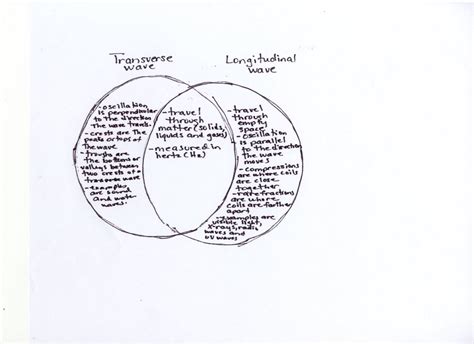 Transverse
wave
Longitudinal
wave
-oscillation
is perpendicular
to the direction
the wave travels.
-crests are the
peaks or tops of
the wave
-troughs are
the bottoms or
valleys between
two crests of a
transverse wave
-examples
are sound
and water
waves.
-travel
through
matter (solids,
liquids and gases)
-measured in
hertz (Hz)
-travel
through
empty
space
-oscillation
is parallel
to the direction
the wave
moves
-compressions
are where coils
are close
together
-rarefractions
are where
coils are farther
apart
-examples are
visible light,
x-rays, radio
waves and
UV waves